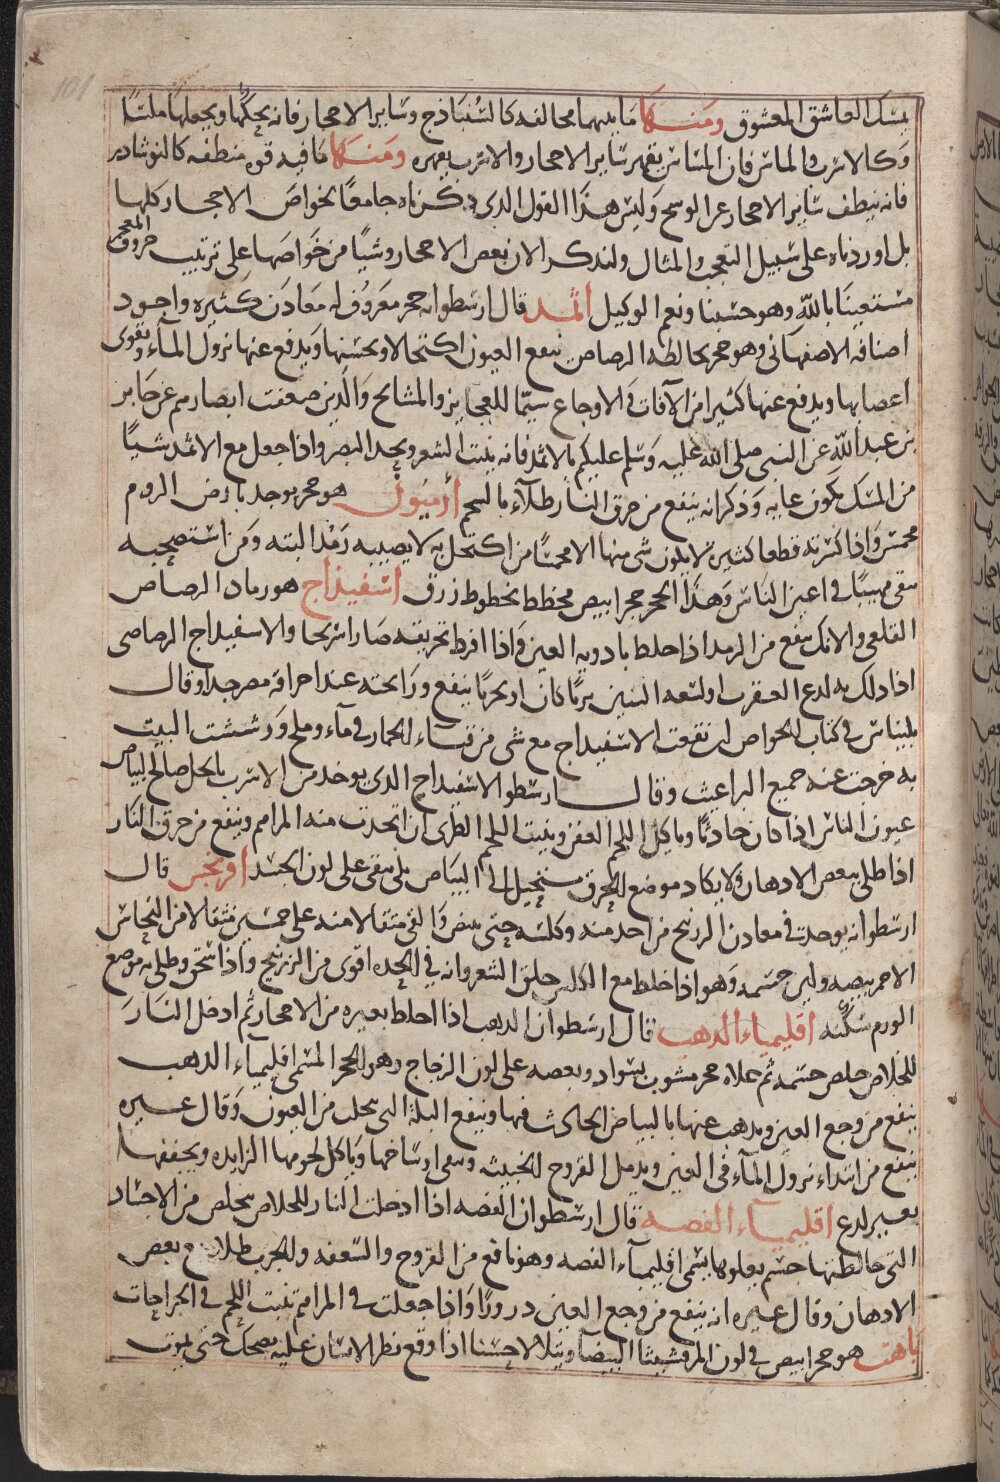 101
يمسك العاشق المعشوق ومنها ما بينهما مخالفه كالسنباذج وسائر الاحجار فانه يحكها ويجعلها ملسا
وكالاسرب والماس فان الماس يقهر سائر الاحجار والاسرب يقهره ومنها ما فيه قوه منظفه كالنوشادر
فانه ينظف سائر الاحجار عن الوسخ وليس هذا القول الذى ذكرناه جامعا لخواص الاحجار كلها
بل اوردناه على سبيل التعجب والمثال ولنذكر الان بعض الاحجار وشيا من خواصها على ترتيب حروف المعجم
مستعينا بالله وهو حسبنا ونعم الوكيل اثمد قال ارسطو انه حجر معروف له معادن كثيره واجود
اصنافه الاصفهانى وهو حجر يخالطه الرصاص ينفع العيون اكتحالا ويحسنها ويدفع عنها نزول الماء وتقوى
اعصابها ويدفع عنها كثيرا من الآفات والاوجاع سيما للعجايز والمشايخ والذين ضعفت ابصارهم عن جابر
بن عبد الله عن النبى صلى الله عليه وسلم عليكم بالاثمد فانه ينبت الشعر ويحد البصر واذا جعل مع الاثمد شيا
من المسك يكون غايه وذكر انه ينفع من حرق النار طلاء بالشحم ارميون هو حجر يوجد بارض الروم
مخمس واذا كسرته قطعا كثيرة لا يكون شى منها الا مخمسا من اكتحل به لا يصيبه رمد البته ومن استصحبه
يبقى مهيبا فى اعين الناس وهذا الحجر حجر ابيض مخطط بخطوط زرق اسفيذاج هو رماد الرصاص
القلعى والانك ينفع من الرمد اذا خلط بادويه العين واذا افرط تحريقه صار اسرنجا والاسفيداج الرصاصى
اذا دلك به لدغ العقرب او لسعه التنين بريا كان او بحريا ينفع ورائحته عند احراقه مضر جدا وقال
بليناس فى كتاب الخواص ان نقعت الاسفيداج مع شى من قثاء الحمار فى ماء وملح ورششت البيت
به خرجت عنه جميع البراغيث وقال ارسطو الاسفيداج الذى يوخذ من الاسرب بالخل صالح لبياض
عيون الناس اذا كان حادثا وياكل اللحم العفن وينبت اللحم الطرى ان اتخذت منه المراهم وينفع من حرق النار
اذا طلى ببعض الادهان ولا يكاد موضع الحرق يستحيل الى البياض بل يبقى على لون الجسد افرنجس قال
ارسطو انه يوجد فى معادن الزرنيخ من اخذ منه وكلسه حتى يبيض والقى مثقالا منه على خمسين مثقالا من النحاس
الاحمر يبيضه ولين جسمه وهو اذا خلط مع الكلس حلق الشعر وانه فى الحده اقوى من الزرنيخ واذا سحق وطلى به موضع
الورم سكنه اقليمياء الذهب قال ارسطو ان الذهب اذا اختلط بغيره من الاحجار ثم ادخل النار
للخلاص خلص جسمه ثم علاه حجر مشوب بسواد وبعضه على لون الزجاج وهو الحجر المسمى اقليمياء الذهب
ينفع من وجع العين ويذهب عنها بالبياض الحادث فيها وينفع البلة التى تحل من العيون وقال غيره
ينفع من ابتداء نزول الماء فى العين ويدمل القروح الخبيثه وينقى اوساخها وياكل لحومها الزايده ويجففها
بغير لدغ اقليمياء الفضه قال ارسطو ان الفضه اذا ادخلت النار للخلاص يخلص من الاجساد
التى خالطتها جسم يعلوها يسمى اقليمياء الفضه وهو نافع من القروح والسعفه والجرب طلاء مع بعض
الادهان وقال غيره انه ينفع من وجع العين درورا واذا جعلت فى المراهم تنبت اللحم فى الجراحات
باهت هو حجر ابيض فى لون المرقشيثا البيضا ويتلالا حسنا اذا وقع نظر الانسان عليه يضحك حتى يموت